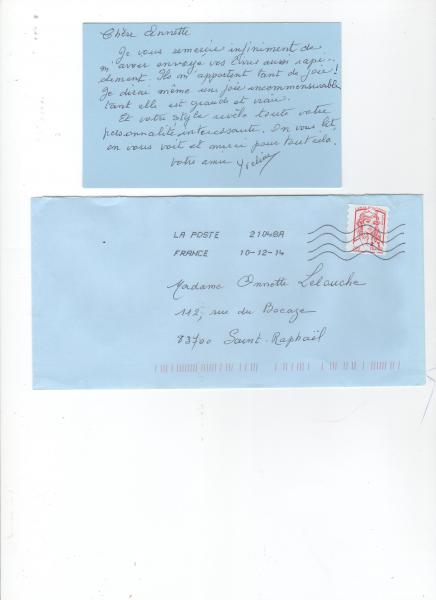 Chère Annette
Je vous remercie infiniment de
m'avoir envoyé vos livres aussi rapi-
dement. Ils m'apportent tant de joie !
Je dirai même une joie incommensurable
tant elle est grande et vraie.
Et votre style révèle toute votre
personnalité intéressante. On vous lit,
on vous voit et merci pour tout cela.
Votre amie
LA POSTE 21048A
FRANCE 10-12-14
Madame Annette Lelouche
112, rue du Bocage
83700 Saint-Raphaël